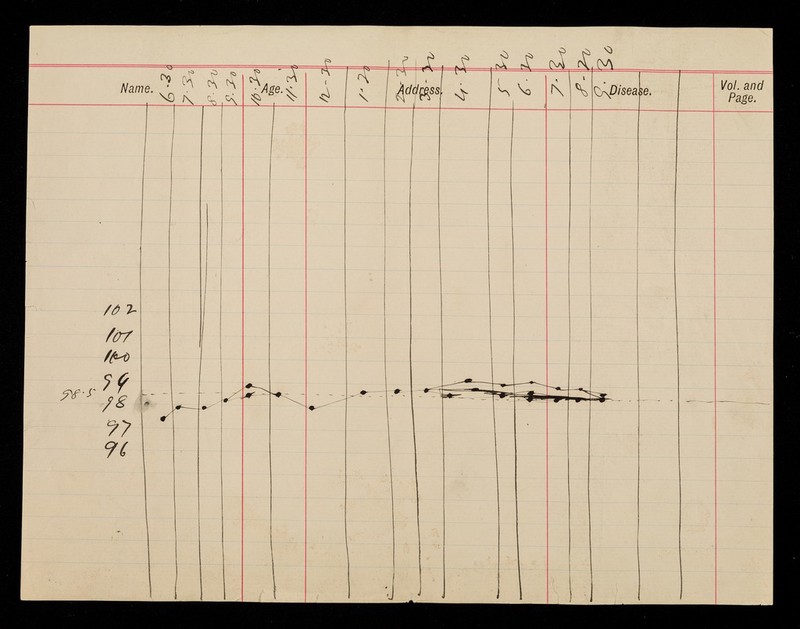 6.30 7.30 8.30 9.30 10.30 11.30 12-30 1.20 2-30 3.30 4.30 5 30 6.30 7.30 8-20 9.30
Name. Age. Address. Disease. Vol. and Page.
102
101
100
99
98.5
98
97
96